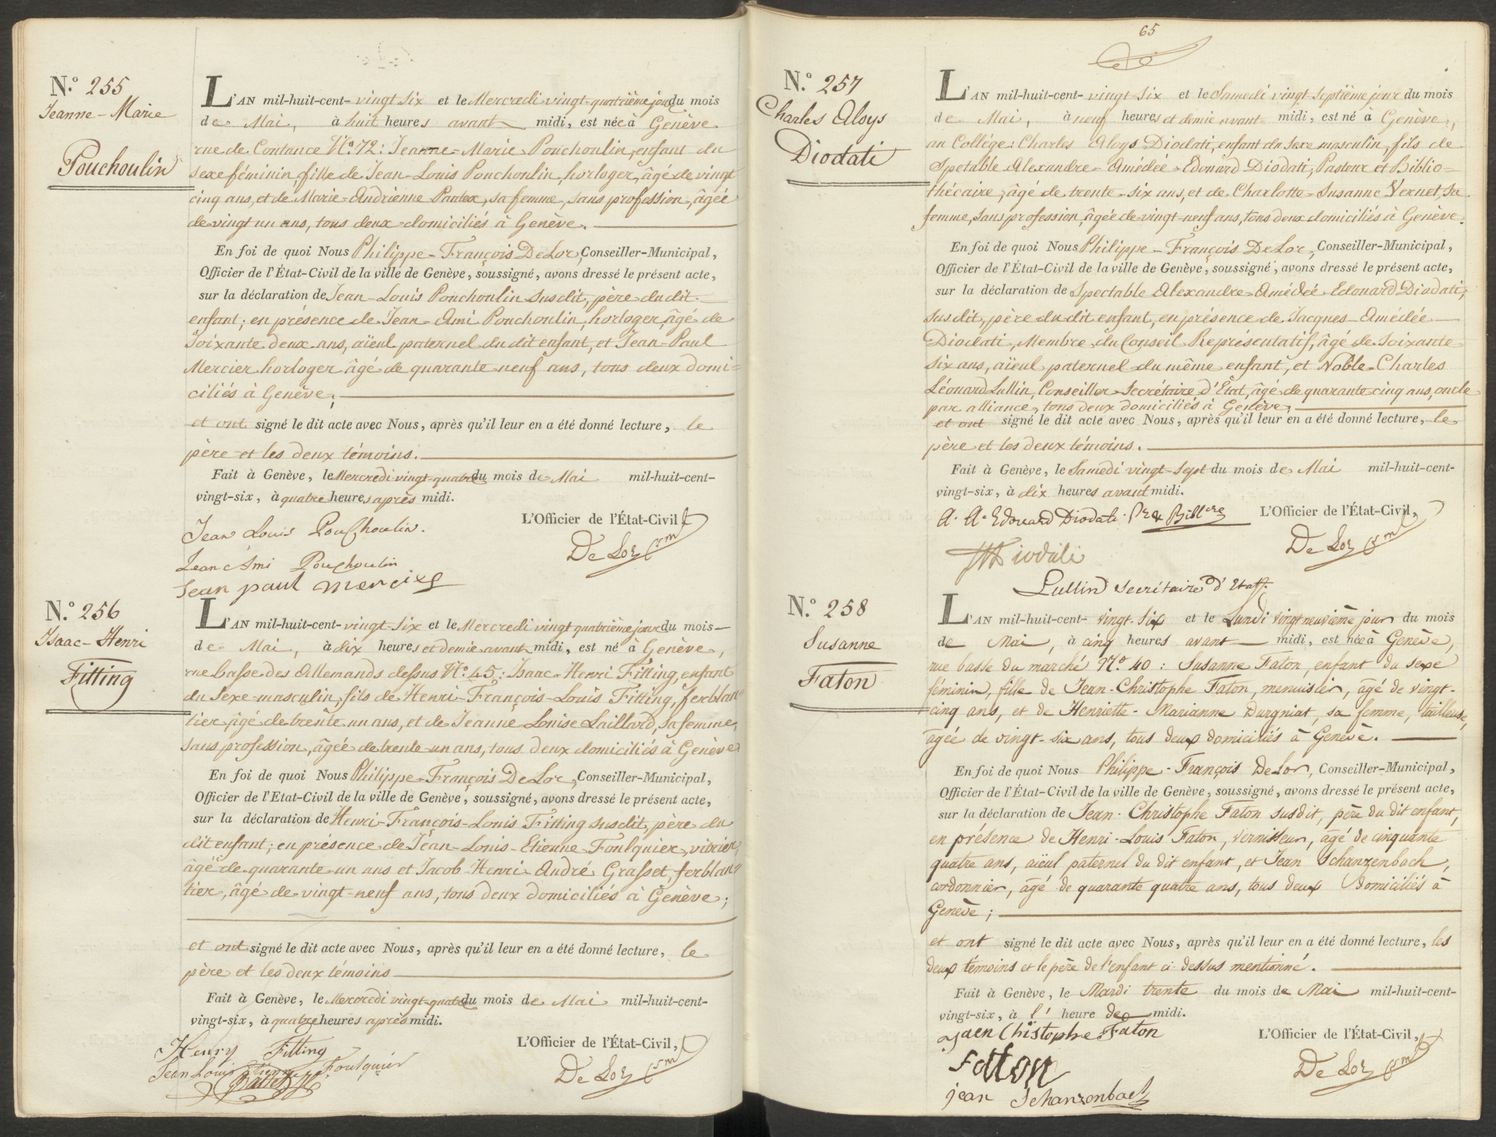 N.º 255
Jeanne-Marie
Pouchoulin
L'AN mil-huit-cent-vingt six et le Mercredi vingt-quatrième jour du mois
de Mai, à huit heures avant midi, est née à Genève
rue de Coutance N.º 72: Jeanne-Marie Pouchoulin, enfant du
sexe féminin, fille de Jean-Louis Pouchoulin, horloger, âgé de vingt
cinq ans, et de Marie-Andrienne Pautex, sa femme, sans profession, âgée
de vingt un ans, tous deux domiciliés à Genève.
En foi de quoi Nous Philippe-François DeLor, Conseiller-Municipal,
Officier de l'État-Civil de la ville de Genève, soussigné, avons dressé le présent acte,
sur la déclaration de Jean-Louis Pouchoulin susdit, père du dit
enfant; en présence de Jean-Ami Pouchoulin, horloger, âgé de
soixante deux ans, aïeul paternel du dit enfant, et Jean-Paul
Mercier horloger âgé de quarante neuf ans, tous deux domi=
ciliés à Genève;
et ont signé le dit acte avec Nous, après qu'il leur en a été donné lecture, le
père et les deux témoins.
Fait à Genève, le Mercredi vingt-quatre du mois de Mai mil-huit-cent-
vingt-six, à quatre heures après midi.
L'Officier de l'État-Civil,
Jean Louis Pouchoulin.
De Lor
Jean Ami Pouchoulin
Jean paul mercier
N.º 256
Isaac-Henri
Fitting
L'AN mil-huit-cent-vingt-six et le Mercredi vingt quatrième jour du mois
de Mai, à dix heures et demie avant midi, est né à Genève,
rue basse des Allemands dessus N.º 45: Isaac-Henri Fitting, enfant
du sexe masculin, fils de Henri-François-Louis Fitting, ferblan=
tier âgé de trente un ans, et de Jeanne Louise Laillard, sa femme,
sans profession, âgée de trente-un ans, tous deux domiciliés à Genève
En foi de quoi Nous Philippe-François DeLor, Conseiller-Municipal,
Officier de l'Etat-Civil de la ville de Genève, soussigné, avons dressé le présent acte,
sur la déclaration de Henri-François-Louis Fitting susdit, père du
dit enfant; en présence de Jean-Louis-Etienne Foulquier, vivrier,
âgé de quarante un ans et Jacob Henri-André Grasset, ferblan=
tier, âgé de vingt-neuf ans, tous deux domiciliés à Genève;
et ont signé le dit acte avec Nous, après qu'il leur en a été donné lecture, le
père et les deux témoins
Fait à Genève, le Mercredi vingt-quatre du mois de Mai mil-huit-cent-
vingt-six, à quatre heures après midi.
L'Officier de l'État-Civil,
Henry Fitting
Jean Louis Etienne Foulquier
De Lor
65
N.º 257
Charles Aloys
Diodati
L'AN mil-huit-cent-vingt six et le Samedi vingt septième jour du mois
de Mai, à neuf heures et demie avant midi, est né à Genève,
au Collége: Charles Aloys Diodati, enfant du sexe masculin, fils de
Spectable Alexandre-Amédée-Edouard Diodati, Pasteur et Biblio=
thécaire, âgé de trente-six ans, et de Charlotte-Susanne Vernet, sa
femme, sans profession, âgée de vingt-neuf ans, tous deux domiciliés à Genève.
En foi de quoi Nous Philippe-François DeLor, Conseiller-Municipal,
Officier de l'État-Civil de la ville de Genève, soussigné, avons dressé le présent acte,
sur la déclaration de Spectable Alexandre-Amédée-Edouard Diodati,
susdit, père du dit enfant, en présence de Jacques-Amédée
Diodati, Membre du Conseil Représentatif, âgé de soixante
six ans, aïeul paternel du même enfant, et Noble-Charles
Léonard Lullin, Conseiller-Secrétaire d'État, âgé de quarante cinq ans, oncle
par alliance, tous deux domiciliés à Genève;
et ont signé le dit acte avec Nous, après qu'il leur en a été donné lecture, le
père et les deux témoins.
Fait à Genève, le Samedi vingt-sept du mois de Mai mil-huit-cent-
vingt-six, à dix heures avant midi.
A. A. Edouard Diodati. Pr & Bill.re
L'Officier de l'État-Civil,
De Lor
Diodati
Lullin Secrétaire d'Etat.
N.º 258
Susanne
Faton
L'AN mil-huit-cent-vingt six et le Lundi vingt neuvième jour du mois
de Mai, à cinq heures avant midi, est née à Genève,
rue basse du marché N.º 40: Susanne Faton, enfant du sexe
féminin, fille de Jean-Christophe Faton, menuisier, âgé de vingt-
cinq ans, et de Henriette-Marianne Durgniat, sa femme, tailleuse,
âgée de vingt-six ans, tous deux domiciliés à Genève.
En foi de quoi Nous Philippe-François DeLor, Conseiller-Municipal,
Officier de l'État-Civil de la ville de Genève, soussigné, avons dressé le présent acte,
sur la déclaration de Jean-Christophe Faton susdit, père du dit enfant,
en présence de Henri-Louis Faton, vernisseur, âgé de cinquante
quatre ans, aïeul paternel du dit enfant, et Jean Schanzenbach,
cordonnier, âgé de quarante quatre ans, tous deux domiciliés à
Genève;
et ont signé le dit acte avec Nous, après qu'il leur en a été donné lecture, les
deux témoins et le père de l'enfant ci dessus mentionné.
Fait à Genève, le Mardi trente du mois de Mai mil-huit-cent-
vingt-six, à l' heure de midi.
Jaen Chistophe Faton
L'Officier de l'État-Civil,
Faton
De Lor
jean Schanzenbach